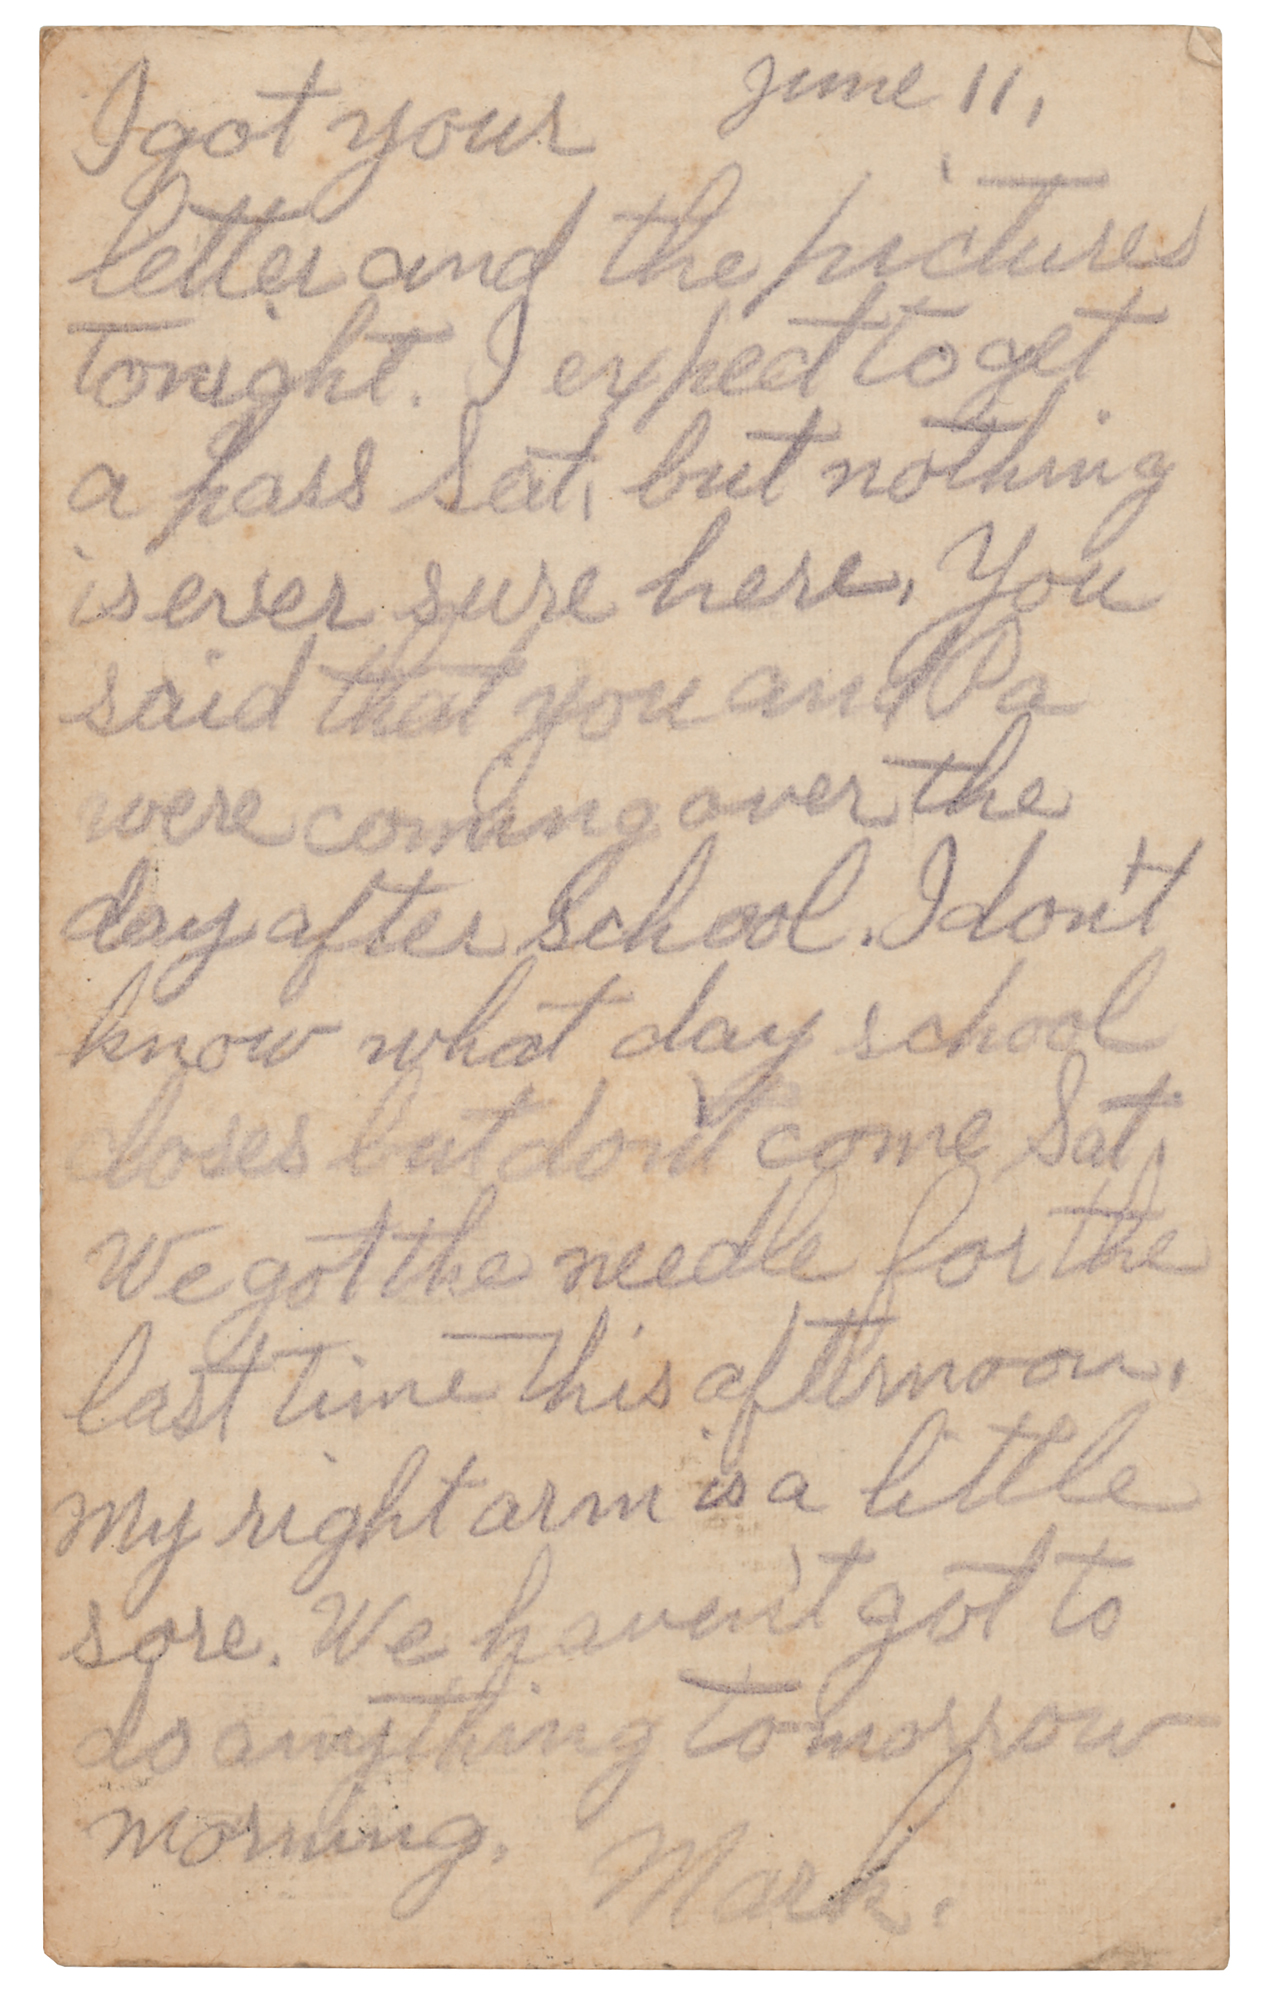 June 11,
I got your
letter and the pictures
tonight. I expect to get
a pass Sat, but nothing
is ever sure here. You
said that you and Pa
were coming over the
day after school. I don't
know what day school
closes but don't come Sat,
We got the needle for the
last time this afternoon.
My right arm is a little
sore. We haven't got to
do anything tomorrow
morning. Mark.